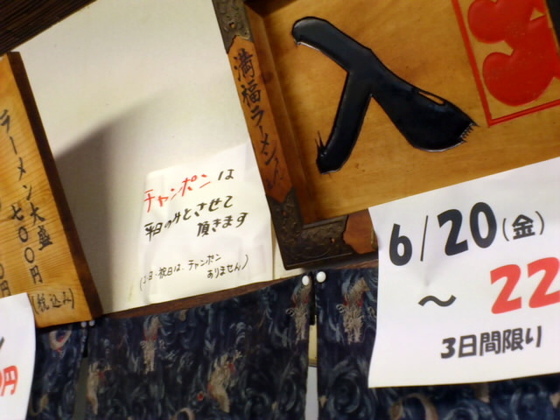 ラーメン大盛
七〇〇円
(税込み)
円
満福ラーメン
チャンポンは
平日のみとさせて
頂きます
祝日は、チャンポン
ありません)
入
6/20(金)
～ 22
3日間限り